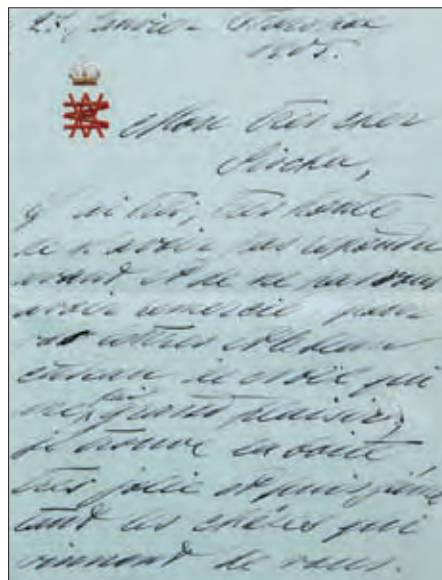 Janvier
1905.
Mon très cher
Nicher,
J'ai très, très honte
de n'avoir pas répondu
avant et de ne pas vous
avoir remercié pour
vos lettres et le beau
de noël qui
m'a fait grand plaisir,
je trouve la boîte
très jolie et puis j'aime
tant les choses qui
viennent de vous.